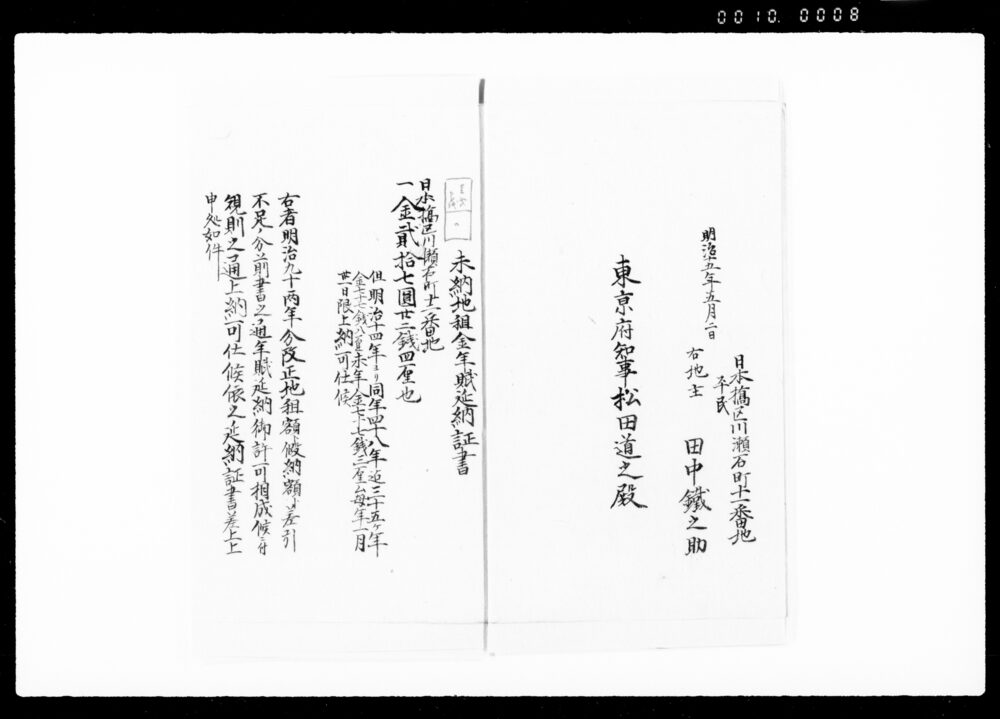 0010.0008
明治十五年五月二日
日本橋区川瀬石町十一番地
平民
右地主 田中鐵之助
東京府知事松田道之殿
未納地租金年賦延納証書
日本橋区川瀬石町十一番地
一金貳拾七圓廿二銭四厘也
但明治十四年ヨリ同年四十八年迄三十五ヶ年
金七十七銭八厘未年金七十七銭三厘ムツ毎年一月
廿一日限上納可仕候
右者明治九十両年分改正地租額ト假納額ト差引
不足之分前書之通年賦延納御許可相成候ニ付
規則之通上納可仕候依之延納証書差上
申処如件